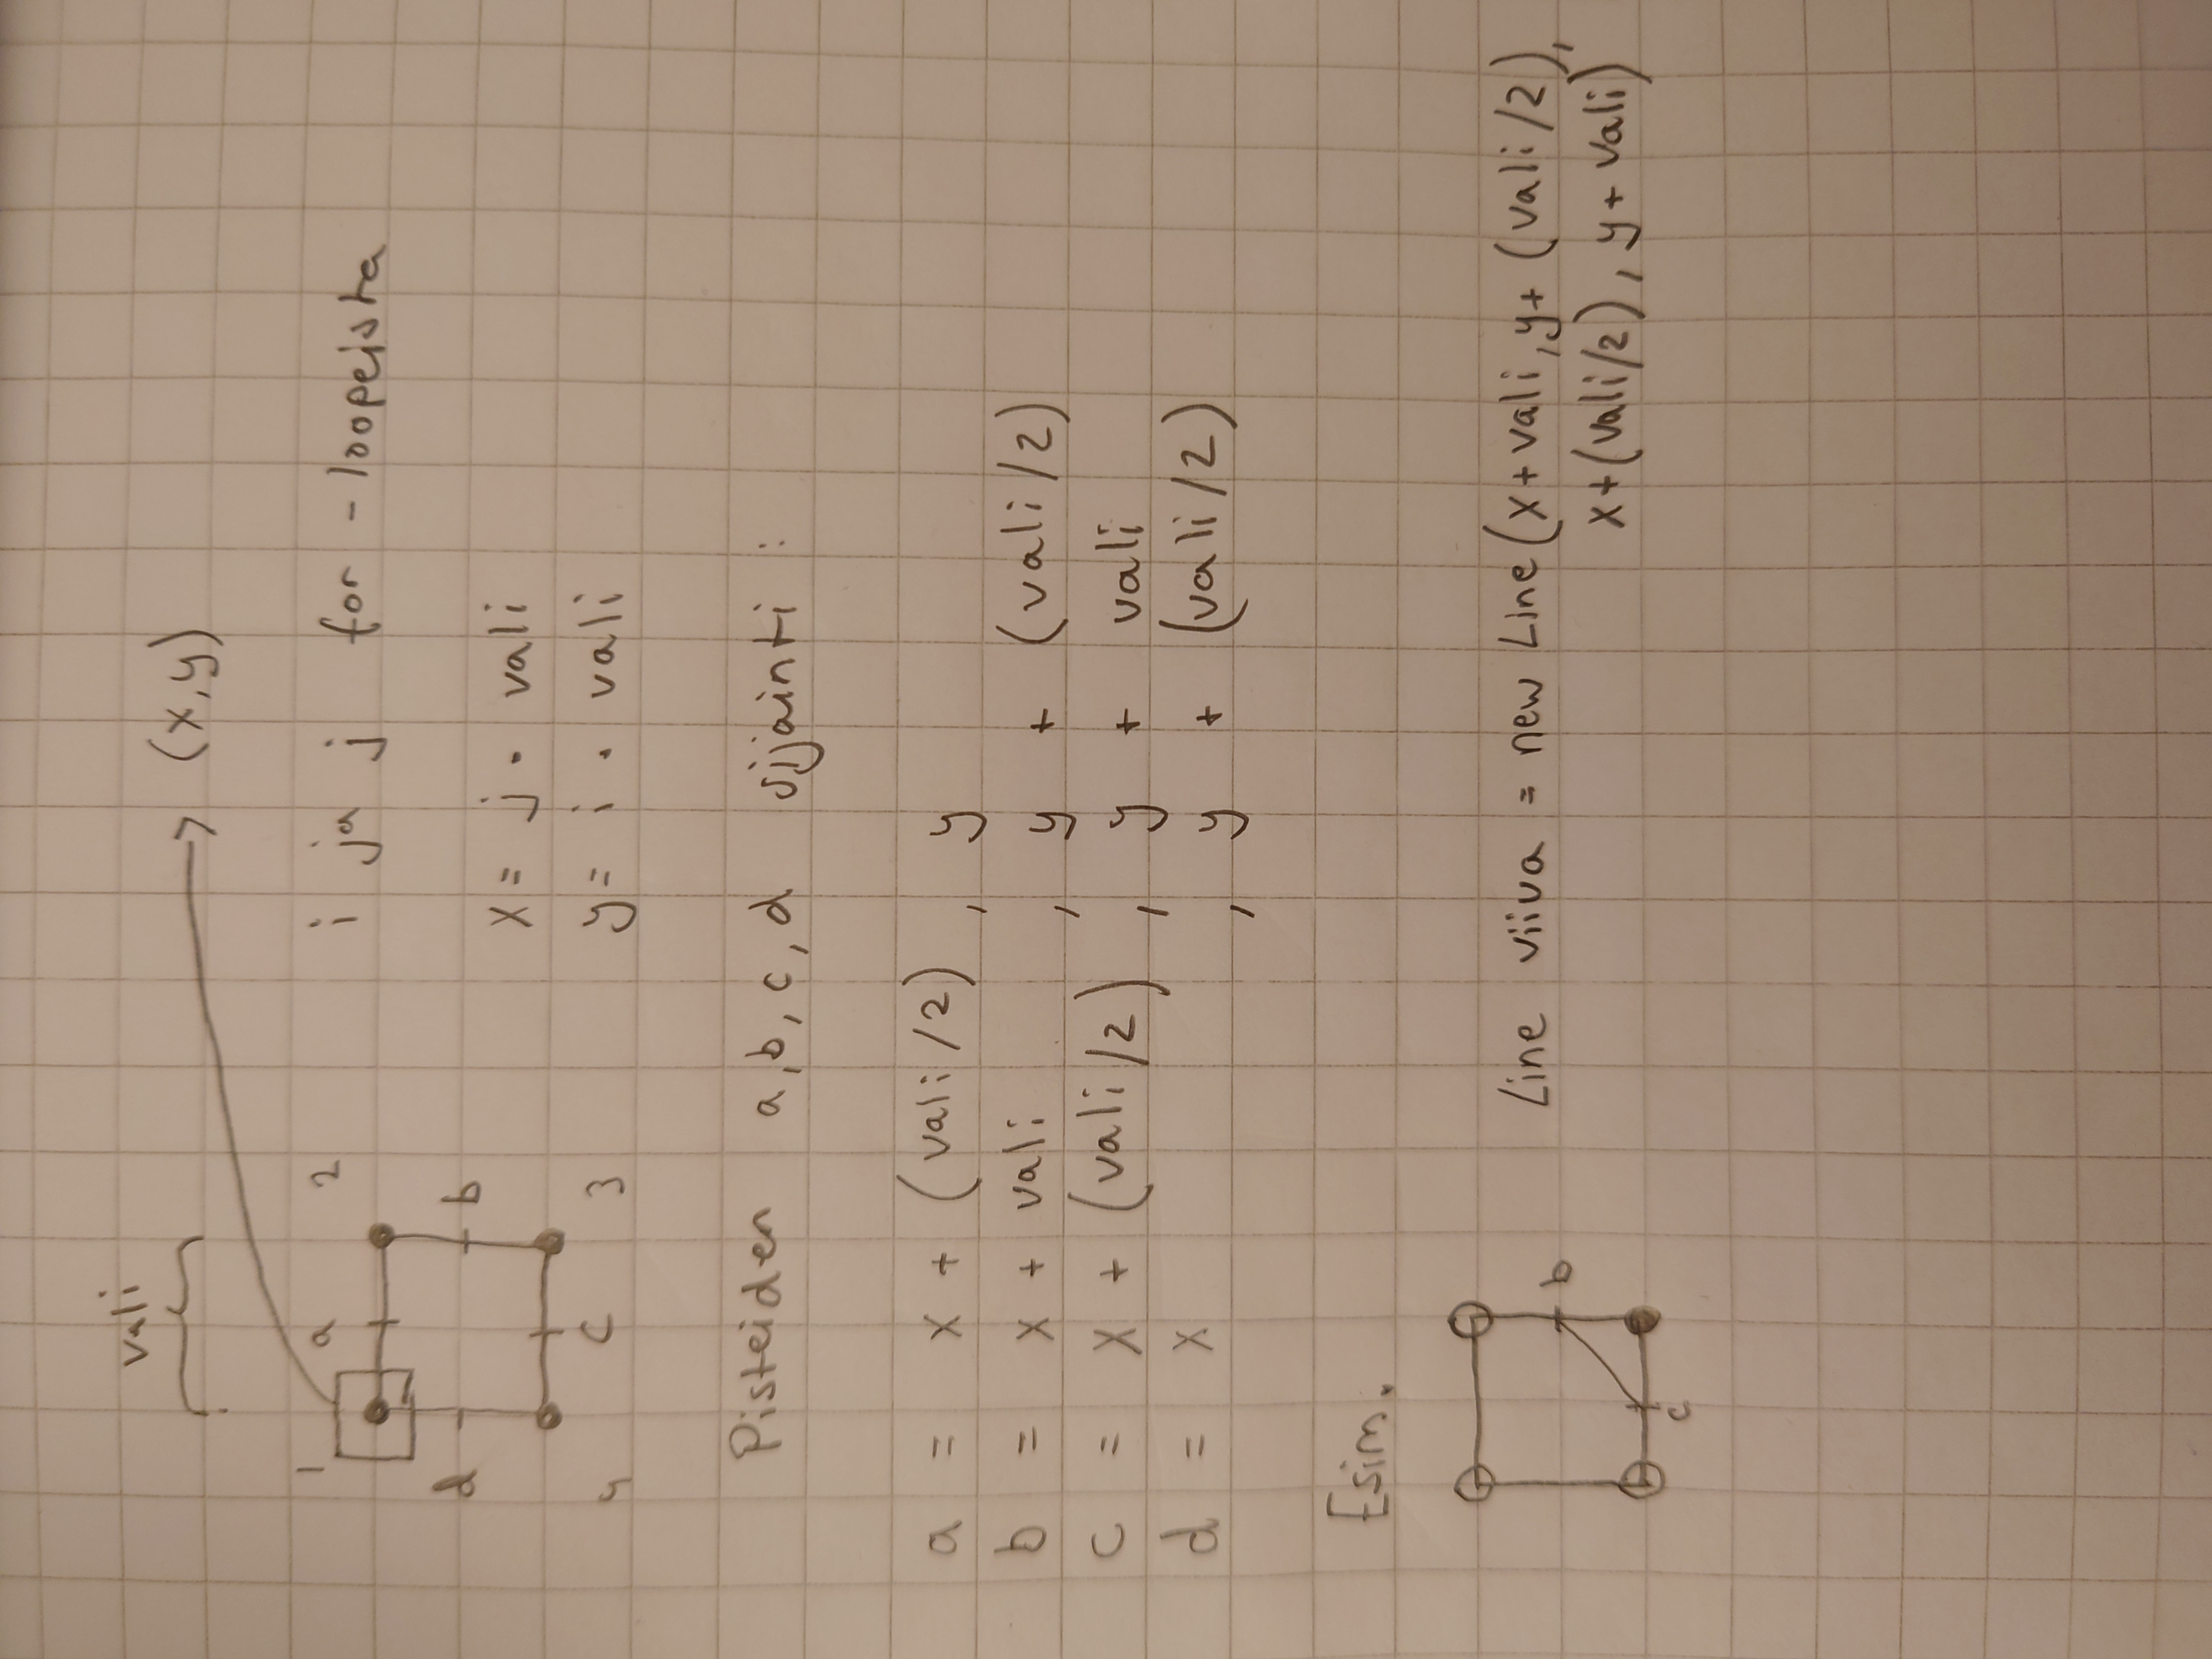 vali
(x,y)
1 a 2
i ja j for -loopeista
d b
x = j · vali
4 c 3
y = i · vali
Pisteiden a,b,c,d sijainti :
a = x + (vali/2) , y
b = x + vali , y + (vali/2)
c = x + (vali/2) , y + vali
d = x , y + (vali/2)
Esim.
Line viiva = new Line(x+vali,y+ (vali/2),
b
x+(vali/2), y+ vali)
c